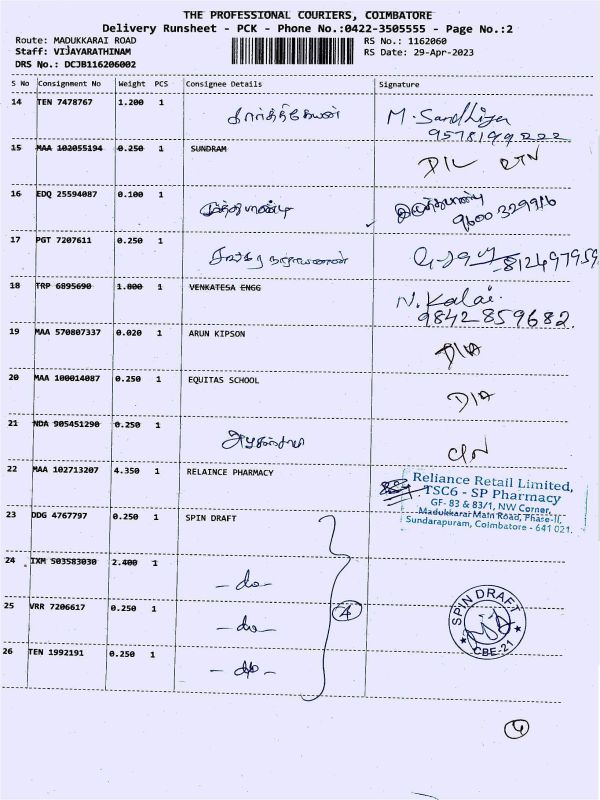 THE PROFESSIONAL COURIERS, COIMBATORE
Delivery Runsheet - PCK - Phone No.:0422-3505555 - Page No.:2
Route: MADUKKARAI ROAD
RS No.: 1162060
Staff: VIJAYARATHINAM
RS Date: 29-Apr-2023
DRS No.: DCJB116206002
S No Consignment No Weight PCS Consignee Details Signature
14 TEN 7478767 1.200 1 கார்த்திகேயன் M. Sandhiya
9578199222
15 MAA 102055194 0.250 1 SUNDRAM D/L RTN
16 EDQ 25594087 0.100 1 முத்துபாண்டி
9600 329916
17 PGT 7207611 0.250 1
812497959
18 TRP 6895690 1.000 1 VENKATESA ENGG N. Kalai
9842859682
19 MAA 570807337 0.020 1 ARUN KIPSON D/A
20 MAA 100014087 0.250 1 EQUITAS SCHOOL D/A
21 NDA 905451290 0.250 1
22 MAA 102713207 4.350 1 RELAINCE PHARMACY
Reliance Retail Limited,
TSC6 - SP Pharmacy
GF- 83 & 83/1, NW Corner,
Madukkarai Main Road, Phase-II,
Sundarapuram, Coimbatore - 641 021.
23 DDG 4767797 0.250 1 SPIN DRAFT
24 IXM 503583030 2.400 1 - do -
25 VRR 7206617 0.250 1 - do -
26 TEN 1992191 0.250 1 - do -
4
SPIN DRAFT
CBE-21
4